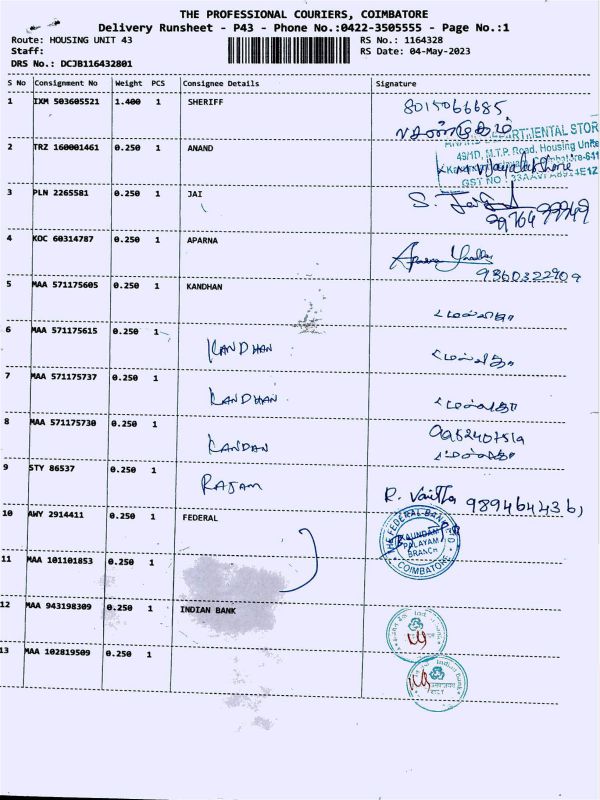 THE PROFESSIONAL COURIERS, COIMBATORE
Delivery Runsheet - P43 - Phone No.:0422-3505555 - Page No.:1
Route: HOUSING UNIT 43
RS No.: 1164328
Staff:
RS Date: 04-May-2023
DRS No.: DCJB116432801
S No Consignment No Weight PCS Consignee Details Signature
1 IXM 503605521 1.400 1 SHERIFF 8015066685
2 TRZ 160001461 0.250 1 ANAND
DEPARTMENTAL STOR
49/1D, M.T.P. Road, Housing Unit
3 PLN 2265581 0.250 1 JAI
4 KOC 60314787 0.250 1 APARNA Aparna
9360322909
5 MAA 571175605 0.250 1 KANDHAN
6 MAA 571175615 0.250 1 KANDHAN
7 MAA 571175737 0.250 1 KANDHAN
8 MAA 571175730 0.250 1 KANDAN
9 STY 86537 0.250 1 RAJAM R. Vaitha
10 AWY 2914411 0.250 1 FEDERAL
THE FEDERAL BANK
PALAYAM
BRANCH
COIMBATORE
11 MAA 101101853 0.250 1
12 MAA 943198309 0.250 1 INDIAN BANK
13 MAA 102819509 0.250 1
Indian Bank